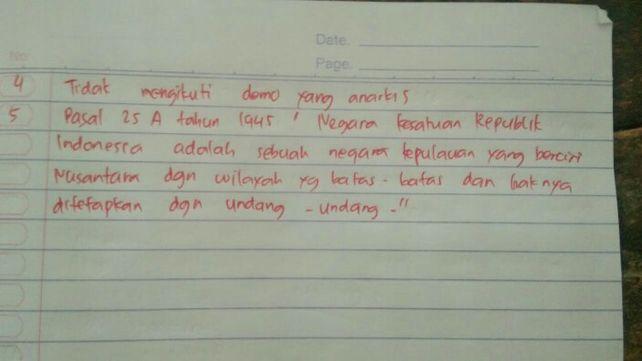 Date.
Page.
No
4 Tidak mengikuti demo yang anarkis
5 Pasal 25 A tahun 1945 " Negara kesatuan Republik
Indonesia adalah sebuah negara kepulauan yang berciri
Nusantara dgn wilayah yg batas - batas dan haknya
ditetapkan dgn undang - undang - "